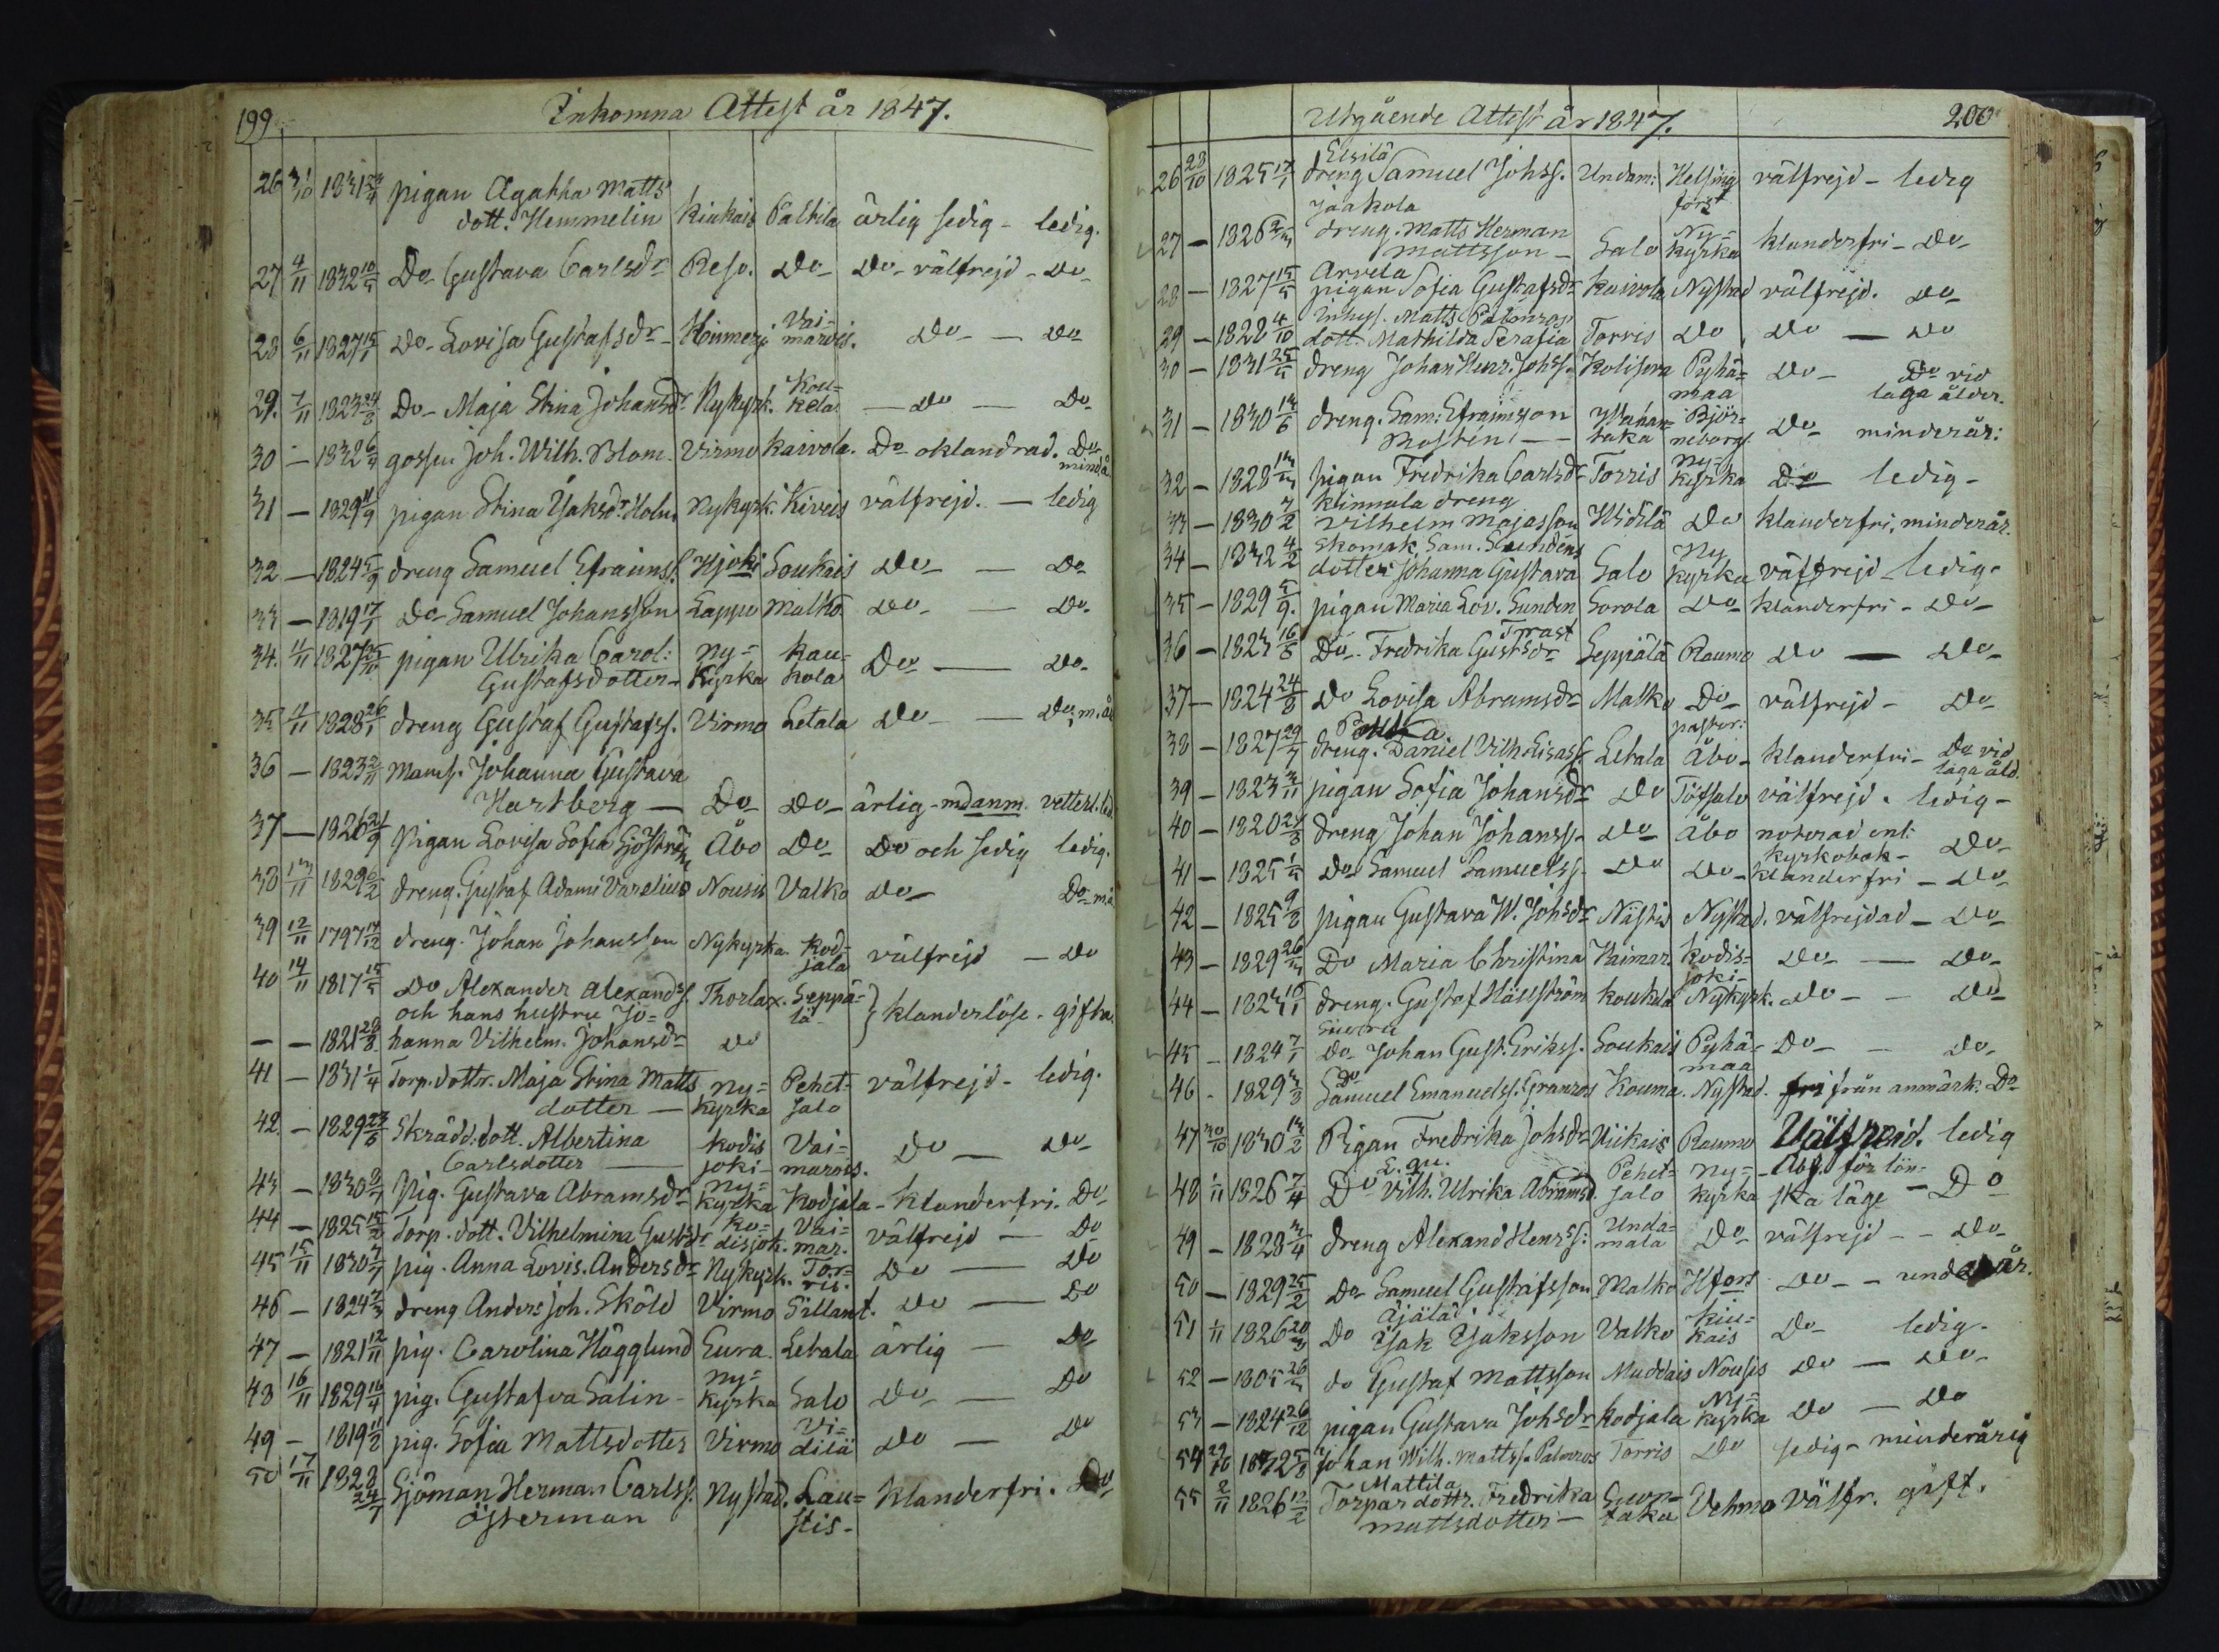 199
Inkomna Attest år 1847.
26 31/10 1831 24/4 pigan Agatha Matts
dott. Hemmelin Kiukais Paltila ärlig sedig - ledig.
27 4/11 1832 10/5 Do- Gustava Carlsdr Reso. Do- Do- välfrejd - Do-
28 6/11 1827 15/1 Do- Lovisa Gustafsdr- Hinnerj Vai=
marois. Do- — Do-
29. 7/11 1823 24/8 Do- Maja Stina Johansdr Nykyrk. Kou=
kela — Do — Do-
30 — 1832 6/4 gossen Joh. Wilh. Blom. Virmo Kaivola. Do- oklandrad. Do-
mindå
31 — 1829 11/9 pigan Stina Isaksdr Holm. Nykyrk. Kiveis välfrejd. — ledig
32 — 1824 5/9 dreng Samuel Efraimss. Hjoki Soukais Do- — Do-
33 — 1819 17/1 Do- Samuel Johansson Lappo Malko Do- — Do-
34. 11/11 1827 25/10 pigan Ulrika Carol: Ny= Kau=
Gustafsdotter- Kyrka kola Do- — Do-
35 11/11 1828 26/1 dreng Gustaf Gustafss. Virmo Letala Do- — Do- m.år
36 — 1823 2/11 Mams. Johanna Gustava
Hartberg — Do- Do- ärlig - md anm. vetterl. led.
37 — 1826 21/9 Pigan Lovisa Sofia Sjöström Åbo Do- Do och sedig ledig.
38 13/11 1829 6/2 dreng. Gustaf Adami Varelius Nousis Valko Do- Do- må
39 12/11 1797 14/12 dreng. Johan Johansson Nykyrka. Kod=
jala välfrejd — Do
40 14/11 1817 15/5 Do Alexander Alexandss. Thorlax. Seppä=
och hans hustru Jo= lä- } klanderlöse - gifta.
— — 1821 28/8 hanna Vilhelm. Johansdr Do
41 — 1831 1/4 Torp. dottr. Maja Stina Matts Ny= Pehet= välfrejd - ledig.
dotter — kyrka salo
42. — 1829 23/6 Skrädd: dott. Albertina Kodis Vai= Do — Do-
Carlsdotter — joki- marois.
43 — 1830 8/7 Pig. Gustava Abramsdr Ny=
kyrka Kodjala - klanderfri. Do-
44 — 1825 15/2 Torp. dott. Vilhelmina Gustsdr Ko= Vai=
disjok. mar. välfrejd — Do
45 15/11 1830 7/7 pig. Anna Lovis. Andersdr Nykyrk. Tor=
ris. Do — Do
46 — 1824 7/3 dreng Anders Joh. Sköld Virmo Sillant. Do — Do
47 — 1821 12/11 pig. Carolina Hägglund Eura. Letala ärlig — Do-
48 16/11 1829 16/4 pig. Gustafva Salin - Ny=
kyrka Salo Do- — Do
49 — 1819 11/2 pig. Sofia Mattsdotter Virmo Vi=
dilä Do — Do
50 17/11 1828
24/7 Sjöman Herman Carlss. Nystad. Lau= klanderfri. Do-
Österman stis-
Utgående Attest år 1847.
200
Elsilä
26 28/10 1825 17/1 dreng Samuel Johss. Undam: Helsing välfrejd - ledig
fors
Jaakola
27 — 1826 2/3 dreng. Matts Herman Ny=
Mattsson - Salo kyrka klanderfri - Do-
Arvela
28 — 1827 15/5 pigan Sofia Gustafsdr Kaivola Nystad välfrejd. Do-
Inhys. Matts Palmros
29 — 1828 4/10 dott. Mathilda Serafia Torris Do Do — Do
30 — 1831 25/11 dreng Johan Henr. Johss. Kolisera Pyhä= Do- Do vid
maa laga ålder.
31 — 1830 13/6 dreng. Sam: Efraimsson Björ=
Mostén — taka neborg. Do- minderår:
32 — 1828 13/3 pigan Fredrika Carlsdr Torris Ny=
kyrka Do- ledig -
Klinnala dreng
33 — 1830 7/2 Vilhelm Majasson Widilä Do klanderfri, minderår.
34 — 1832 4/2 Skomak. Sam. Sundéns Ny
dotter Johanna Gustava Salo kyrka välfrejd - ledig -
35 — 1829 5/9. pigan Maria Lov. Sundén Sorola Do- klanderfri - Do-
Trast
36 — 1823 16/8 Do- Fredrika Gustsdr Seppälä Raumo Do — Do-
37 — 1824 24/8 Do Lovisa Abramsdr Malko Do- välfrejd - Do-
pastor:
38 — 1827 29/7 dreng. Daniel Vilh. Eisass. Letala Åbo- klanderfri - Do vid
laga åld.
39 — 1823 3/11 pigan Sofia Johansdr Do Töfsalo välfrejd. ledig -
40 — 1820 25/3 dreng Johan Johanss. Do- Åbo noterad enl:
kyrkobok - Do-
41 — 1825 1/5 Do- Samuel Samuelss. Do Do- klanderfri - Do-
42 — 1825 9/8 pigan Gustava W. Johsdr Nästis Nystad. välfrejdad - Do-
43 — 1829 26/3 Do Maria Christina Vaimar. Kodis=
joki- Do- — Do-
44 — 1823 dreng. Gustaf Hällström Koukela Nykyrk. Do- — Do-
45 — 1824 7/1 Do- Johan Gust. Erikss. Soukais Pyhä=
maa Do- — Do-
Do
46 - 1829 3/3 Samuel Emanuelss. Granros Kouma. Nystad. fri från anmärk. Do-
47 30/10 1830 13/2 Pigan Fredrika Johsdr Wiikais Raumo Välfreid. ledig
E. qu.
48 1/11 1826 7/4 Do Vilh. Ulrika Abramsd. Pehet= Ny= - Absol. för lön-
salo kyrka ska läge - Do
49 — 1828 3/4 dreng Alexand Henrss: Unda=
mala Do- välfrejd - - Do-
50 — 1829 25/2 Do- Samuel Gustafsson Malko Hfors Do- - underår.
Äjälä
51 1/11 1826 20/3 Do Isak Isaksson Valko Kiu=
kais Do- ledig -
52 — 1805 26/5 do Gustaf Mattsson Muddais Nousis Do — Do-
53 — 1824 26/12 pigan Gustava Johsdr Kodjala Ny=
kyrka Do — Do
54 29/10 1832 5/8 Johan Wilh. Mattss. Palmros Torris Do sedig - minderårig
Mattila
55 2/11 1826 12/2 Torpar dottr. Fredrika Suon= Vehmo Välfr. gift.
Mattsdotter — taka